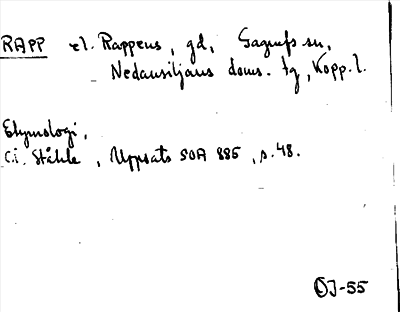 RAPP el. Rappens, gd, Gagnefs sn,
Nedansiljans doms. tg, Kopp. l.
Etymologi,
C.I. Ståhle, Uppsats SOA 885, s. 48.
OJ-55